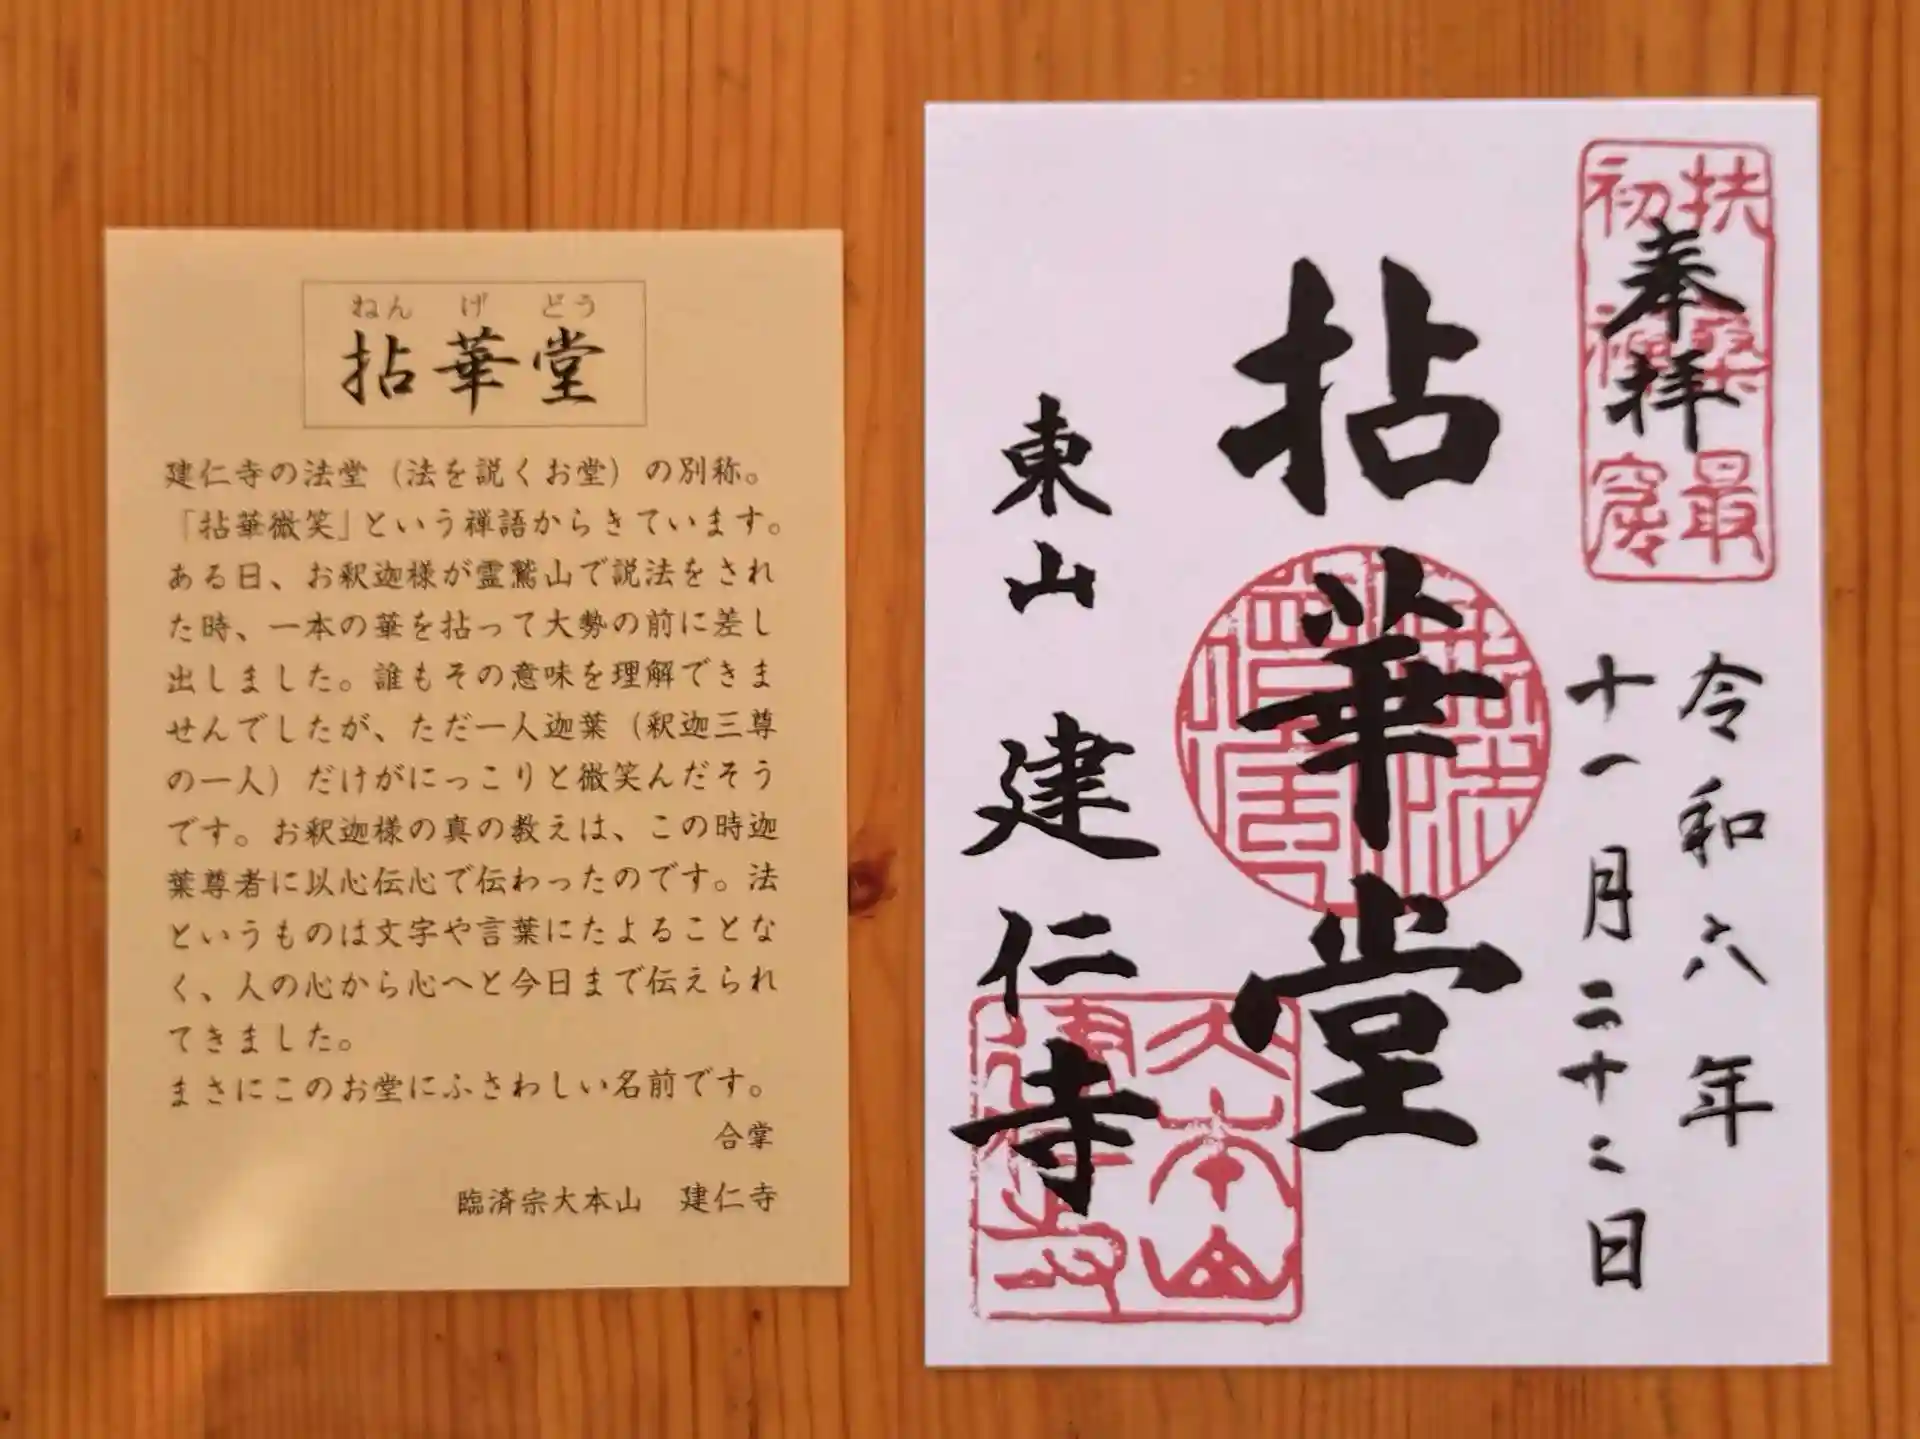 ねんげどう
拈華堂
建仁寺の法堂（法を説くお堂）の別称。
「拈華微笑」という禅語からきています。
ある日、お釈迦様が霊鷲山で説法をされ
た時、一本の華を拈って大勢の前に差し
出しました。誰もその意味を理解できま
せんでしたが、ただ一人迦葉（釈迦三尊
の一人）だけがにっこりと微笑んだそう
です。お釈迦様の真の教えは、この時迦
葉尊者に以心伝心で伝わったのです。法
というものは文字や言葉にたよることな
く、人の心から心へと今日まで伝えられ
てきました。
まさにこのお堂にふさわしい名前です。
合掌
臨済宗大本山　建仁寺
奉拝
扶桑最
初禅窟
令和六年
十一月二十二日
拈華堂
東山 建仁寺
大本山
建仁寺